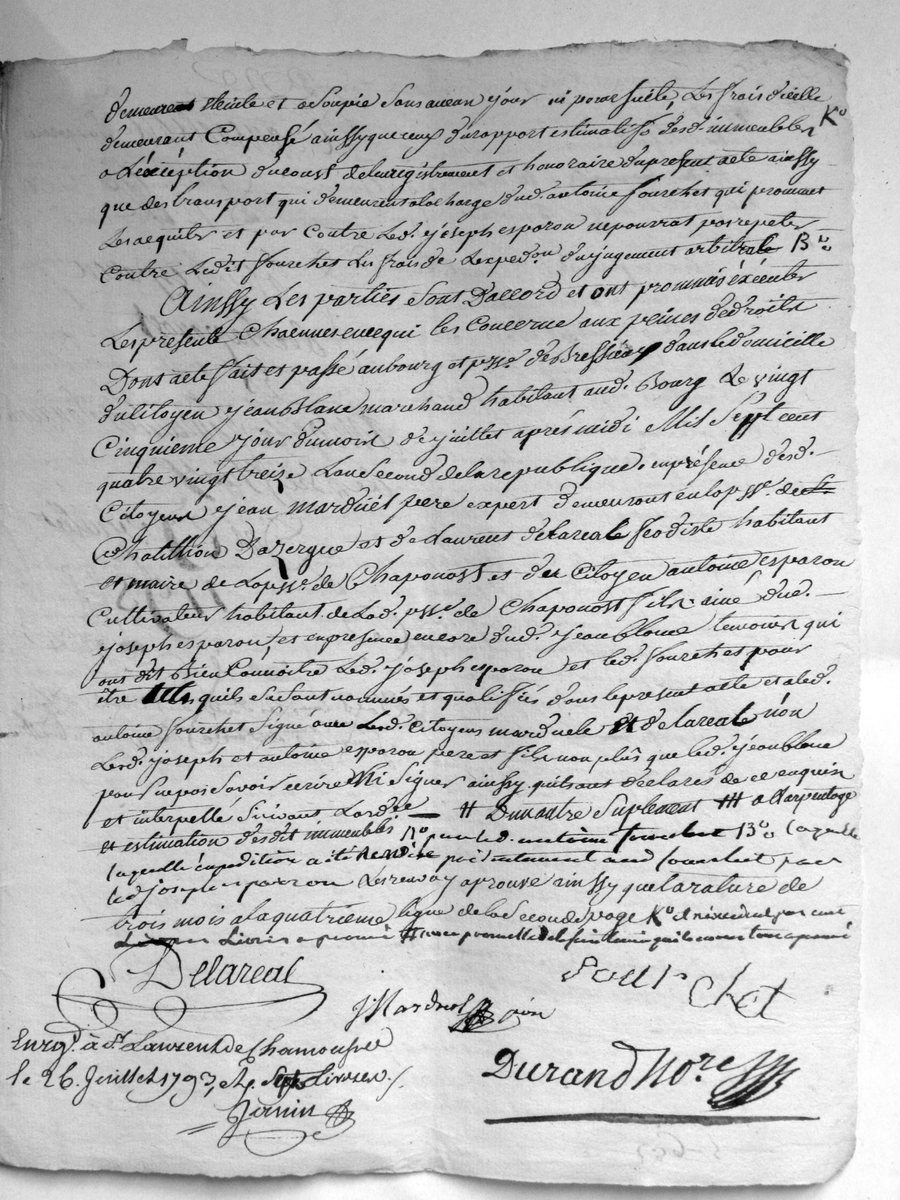 demeurent eteinte et asoupie sans aucun jour ni poursuite, Les frais d'icelle
demeurant Compensé ainssy que ceux du rapport estimatifs desd. immeubles K.o
a L'exéception du coust de lenregistrement et honoraire du present acte ainssy
que des transport qui demeurent a la charge dud. antoine fourchet qui prommet
Les aequiter et par Contre Led. joseph esparon ne pourrat pas repeter
Contre Ledit fourchet Les frais de Lexped.on du jugement arbitrale B.o
Ainssy Les parties sont D'accord et ont prommis éxécuter
Les presente Chacunes en ce qui les Concerne aux peines de droits
Dont acte fait et passé au bourg et p.sse de Bessenay dans le domicille
du Citoyen jean Blanc marchand habitant aud. Bourg Le vingt
Cinquieme jour du mois de juillet après midi Mil Sept cent
quatre vingt treize Lan Second de la republique, en présence desd.
Citoyens jean marduel pere expert demeurant en la p.sse de
Chatillion Dazergue et de Laurent delareal feodiste habitant
et maire de La p.sse de Chaponost et du Citoyen antoine esparon
Cultivateur habitant de Lad. p.sse de Chaponost fils ainé dud.
joseph esparon, et en presence encore dud. jean blanc temoins qui
ont dit Bien Connoitre Led. joseph esparon et led. fourchet pour
être tels quils se sont nommés et qualiffiés dans le present acte et a led.
antoine fourchet signé avec Lesd. Citoyens marduel et delareal non
Lesd. joseph et antoine esparon pere et fils non plus que led. jean blanc
pour ne pas Savoir ecrire Ni Signer ainssy quils ont déclarés de ce enquis
et interpellé Suivant Lord.ce — # Dun autre Suplement ### a Larpentage
et estimation desdit immeubles B.o par led. antoine fourchet B.o Laquelle
Laquelle éxpédition a été Remise presentement aud fourchet par
led joseph esparron Les renvoy aprouvé ainssy que la rature de
trois mois a la quatrieme ligne de la Seconde page K.o
Livres
Delareal
fourchet
J. Marduel
Durand No.re
Enrg.é à St. Laurent de Chamousset
le 26. Juillet 1793, Livres
Janin